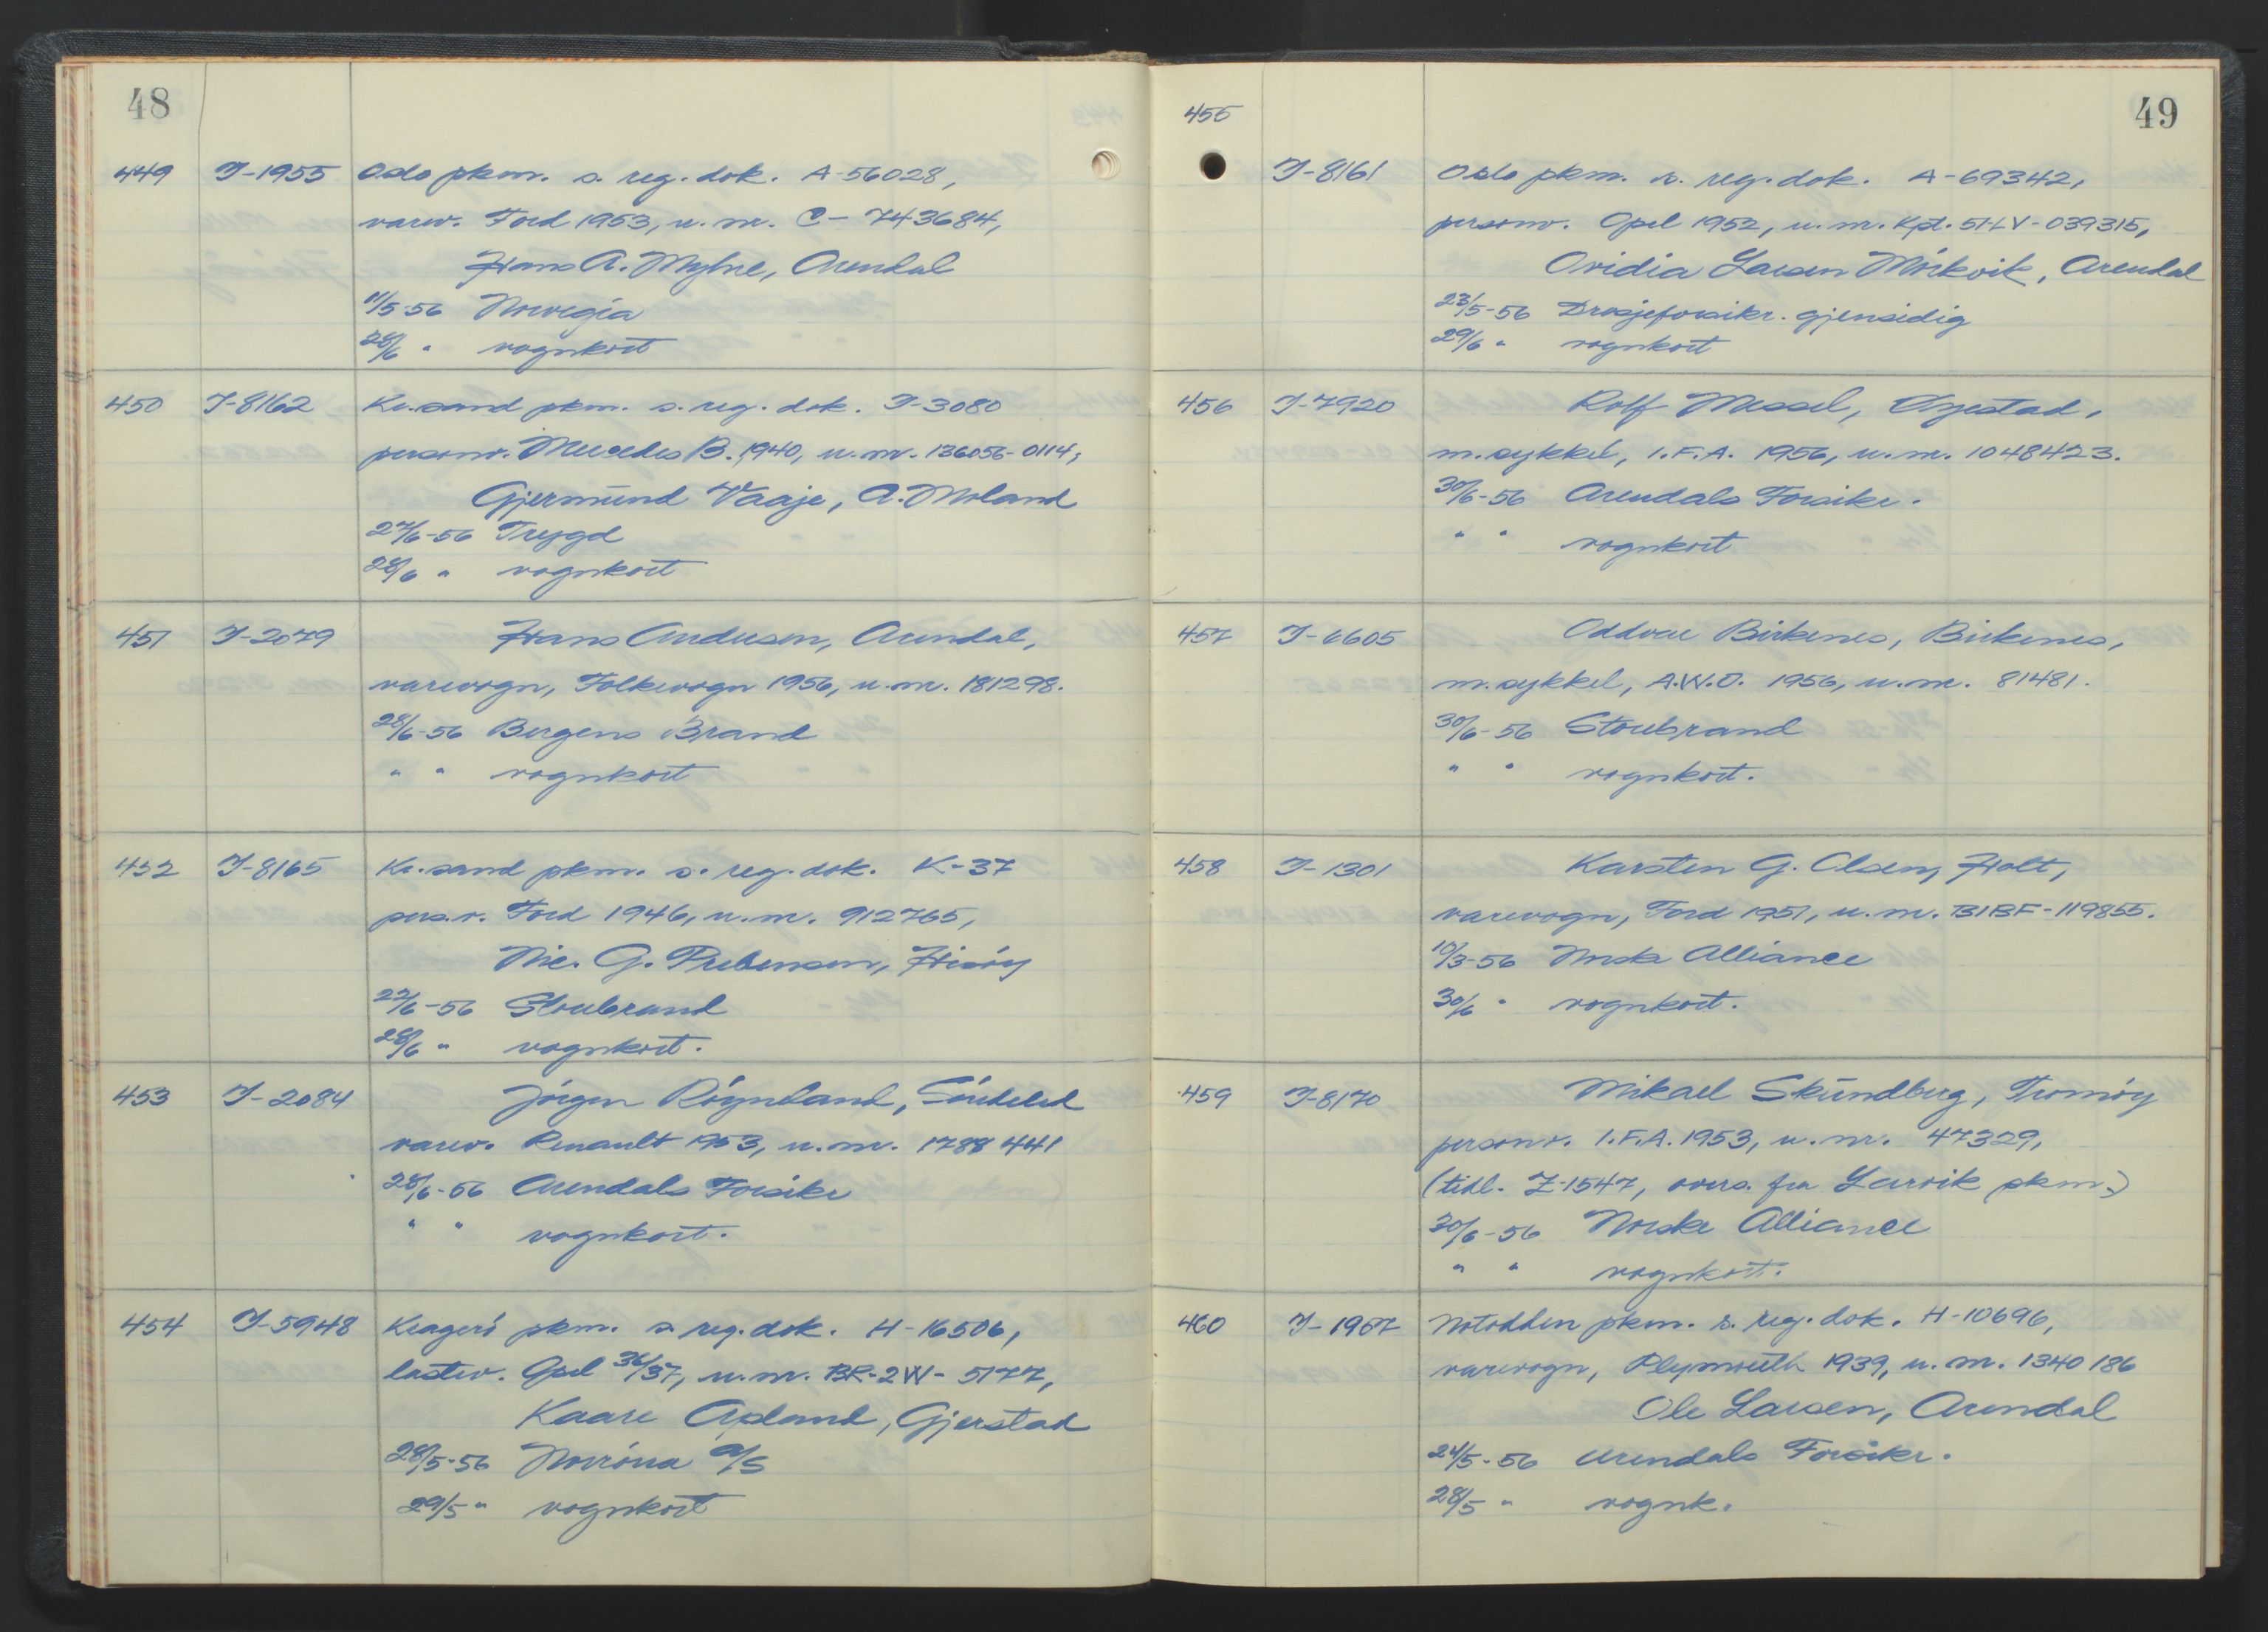 48
449 I-1955 Oslo pkm. s. reg. dok. A-56028,
varev. Ford 1953, u. nr. C-743684,
Hans A. Myhre, Arendal
11/5-56 Norvegia
28/6 " vognkort
450 I-8162 Kr.sand pkm. s. reg. dok. I-3080
personv. Mercedes B. 1940, u. nr. 136056-0114,
Gjermund Vaaje, A. Moland
27/6-56 Trygd
28/6 " vognkort
451 I-2079 Hans Andersen, Arendal,
varevogn, Folkevogn 1956, u. nr. 181298.
28/6-56 Bergens Brand
" " vognkort
452 I-8165 Kr.sand pkm. s. reg. dok. K-37
pers.v. Ford 1946, u. nr. 912765,
Nic. G. Prebensen, Hisöy
22/6-56 Storebrand
28/6 " vognkort.
453 I-2084 Jörgen Röynland, Söndeled
varev. Renault 1953, u. nr. 1788441
28/6-56 Arendals Forsikr
" " vognkort.
454 I-5948 Kragerö pkm. s. reg. dok. H-16506,
lastev. Opel 36/37, u. nr. BR-2W-5177,
Kaare Apland, Gjerstad
28/5-56 Norröna A/S
29/5 " vognkort
49
455
I-8161 Oslo pkm. s. reg. dok. A-69342,
personv. Opel 1952, u. nr. Kpt. 51-LV-039315,
Ovidia Larsen Mörkvik, Arendal
23/5-56 Drosjeforsikr. gjensidig
29/6 " vognkort
456 I-7920 Rolf Messel, Öyestad,
m.sykkel, I.F.A. 1956, u. nr. 1048423.
30/6-56 Arendals Forsikr.
" " vognkort
457 I-6605 Oddvar Birkenes, Birkenes,
m.sykkel, A.W.O. 1956, u. nr. 81481.
30/6-56 Storebrand
" " vognkort.
458 I-1301 Karsten G. Olsen, Holt,
varevogn, Ford 1951, u. nr. B1BF-119855.
10/3-56 Norske Alliance
30/6 " vognkort.
459 I-8170 Mikael Skundberg, Tromöy
personv. I.F.A. 1953, u. nr. 47329,
(tidl. Z-1547, overs. fra Larvik pkm.)
30/6-56 Norske Alliance
" " vognkort.
460 I-1967 Notodden pkm. s. reg. dok. H-10696,
varevogn, Plymouth 1939, u. nr. 1340186
Ole Larsen, Arendal
24/5-56 Arendals Forsikr.
28/5 " vognk.